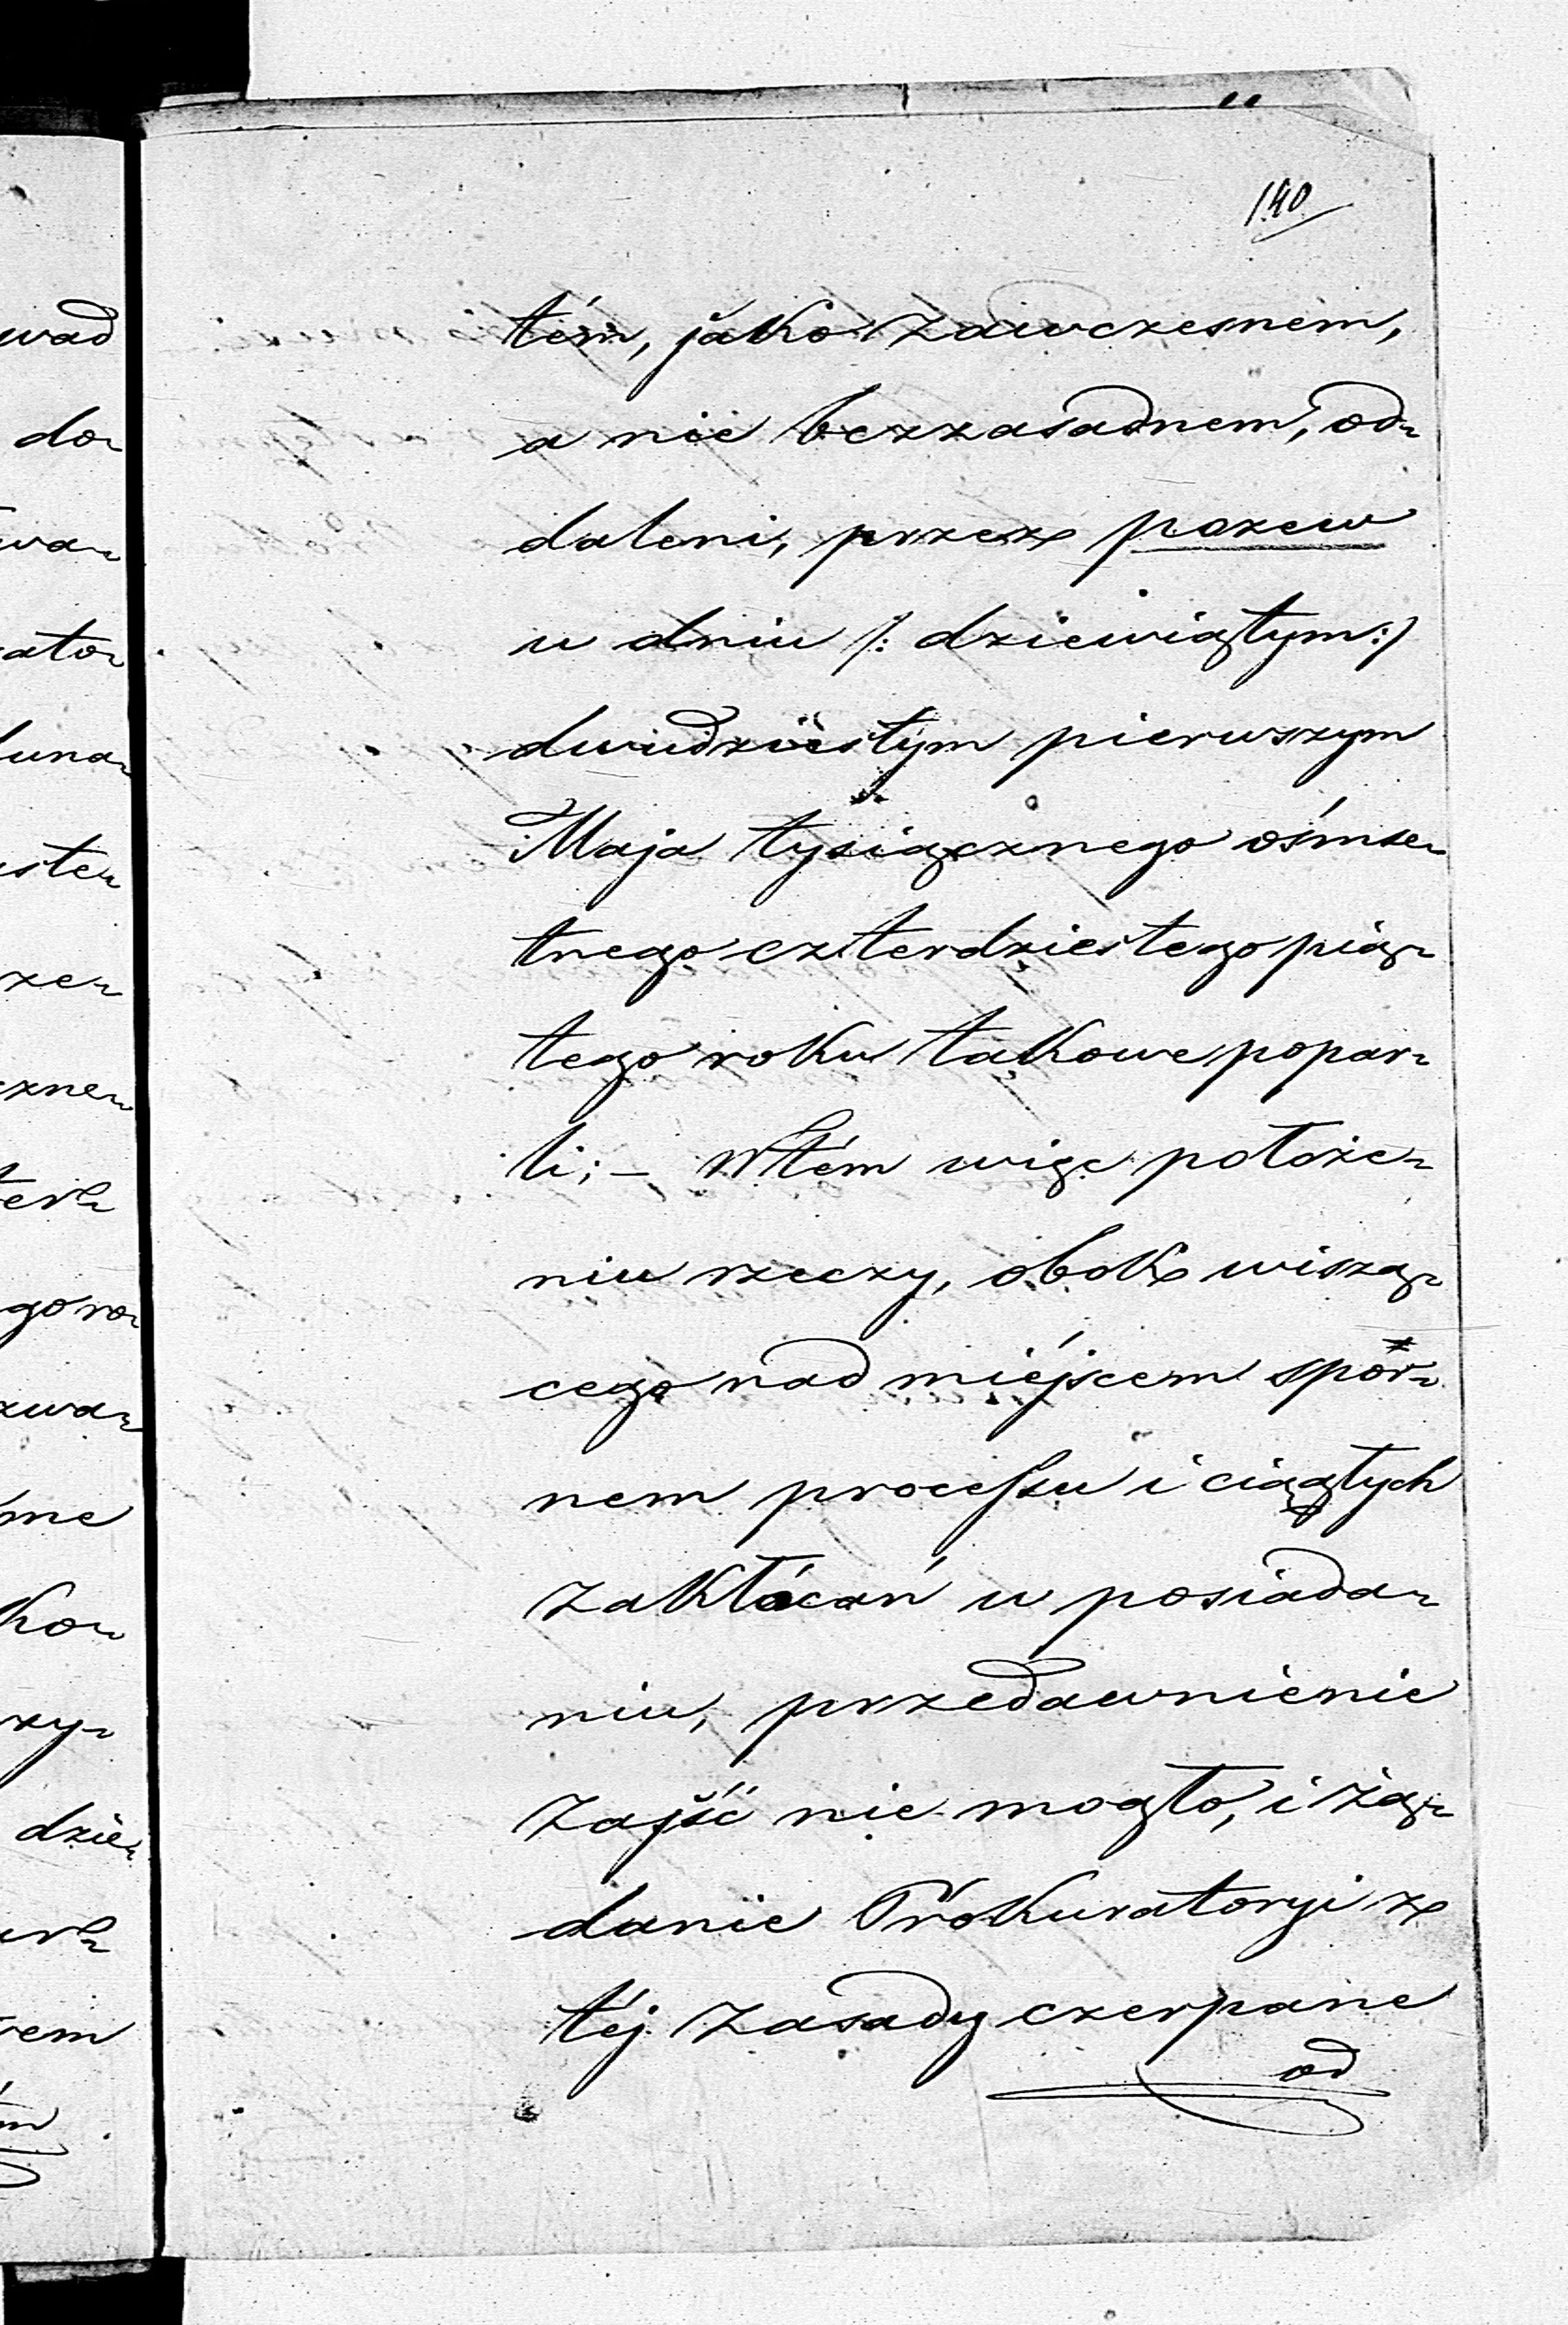 140
tém, jako zawczesnem,
a nie bezzasadnem, od-
daleni, przez pozew
w dniu /: dziewiątym :/
dwudziestym pierwszym
Maja tysiącznego ośmse-
tnego czterdziestego pią-
tego roku takowe popar-
li; – W tém więc położe-
niu rzeczy, obok wiszą-
cego nad miéjscem spor-
nem processu i ciągłych
zakłócań w posiada-
niu, przedawnienie
zajść nie mogło, i żą-
danie Prokuratoryi z
téj zasady czerpane
od
wad
do-
wa-
ator
luna-
ste-
ze-
zne-
gora
zwa-
me
ko-
zy-
dzie-
em